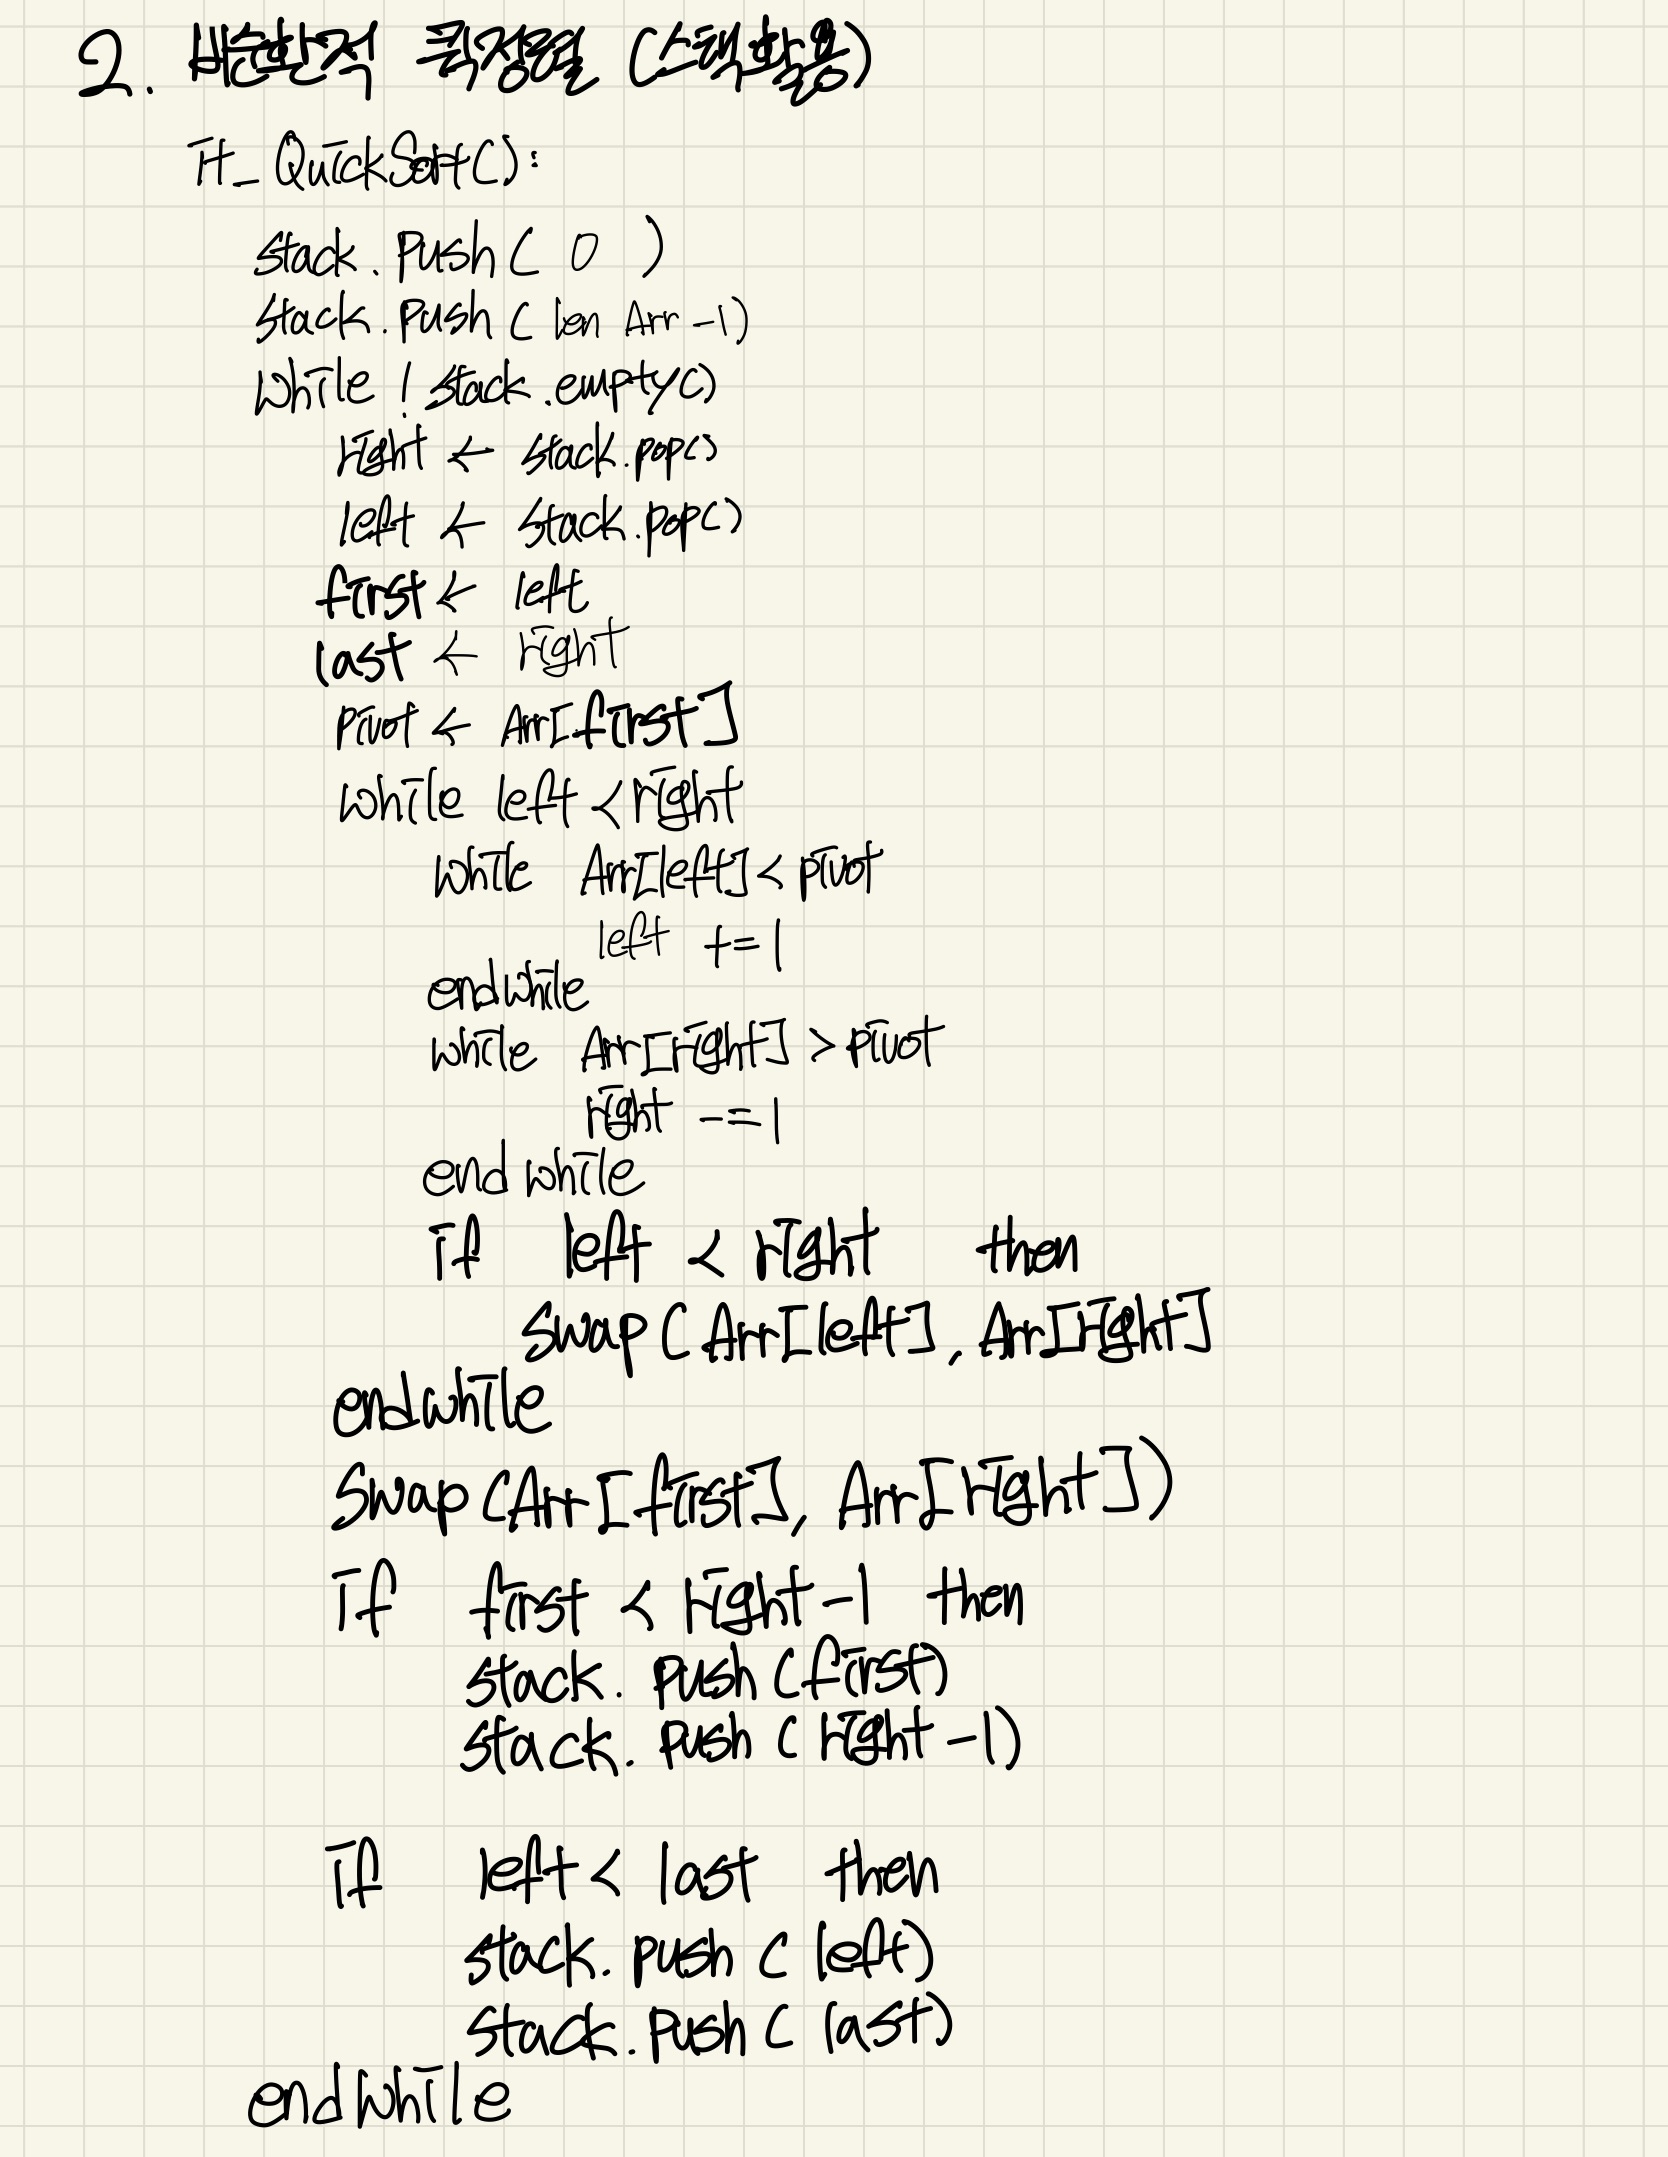 2. 비순환적 퀵정렬 (스택활용)
It_QuickSort():
stack.push( 0 )
stack.push( len Arr -1)
while ! stack.empty()
right ← stack.pop()
left ← stack.pop()
first ← left
last ← right
pivot ← Arr[first]
while left < right
while Arr[left] < pivot
left += 1
endwhile
while Arr[right] > pivot
right -= 1
end while
if left < right then
swap ( Arr[left], Arr[right]
endwhile
Swap (Arr[first], Arr[right])
if first < right -1 then
stack. push (first)
stack. push ( right -1)
if left < last then
stack. push ( left)
stack. push ( last)
endwhile